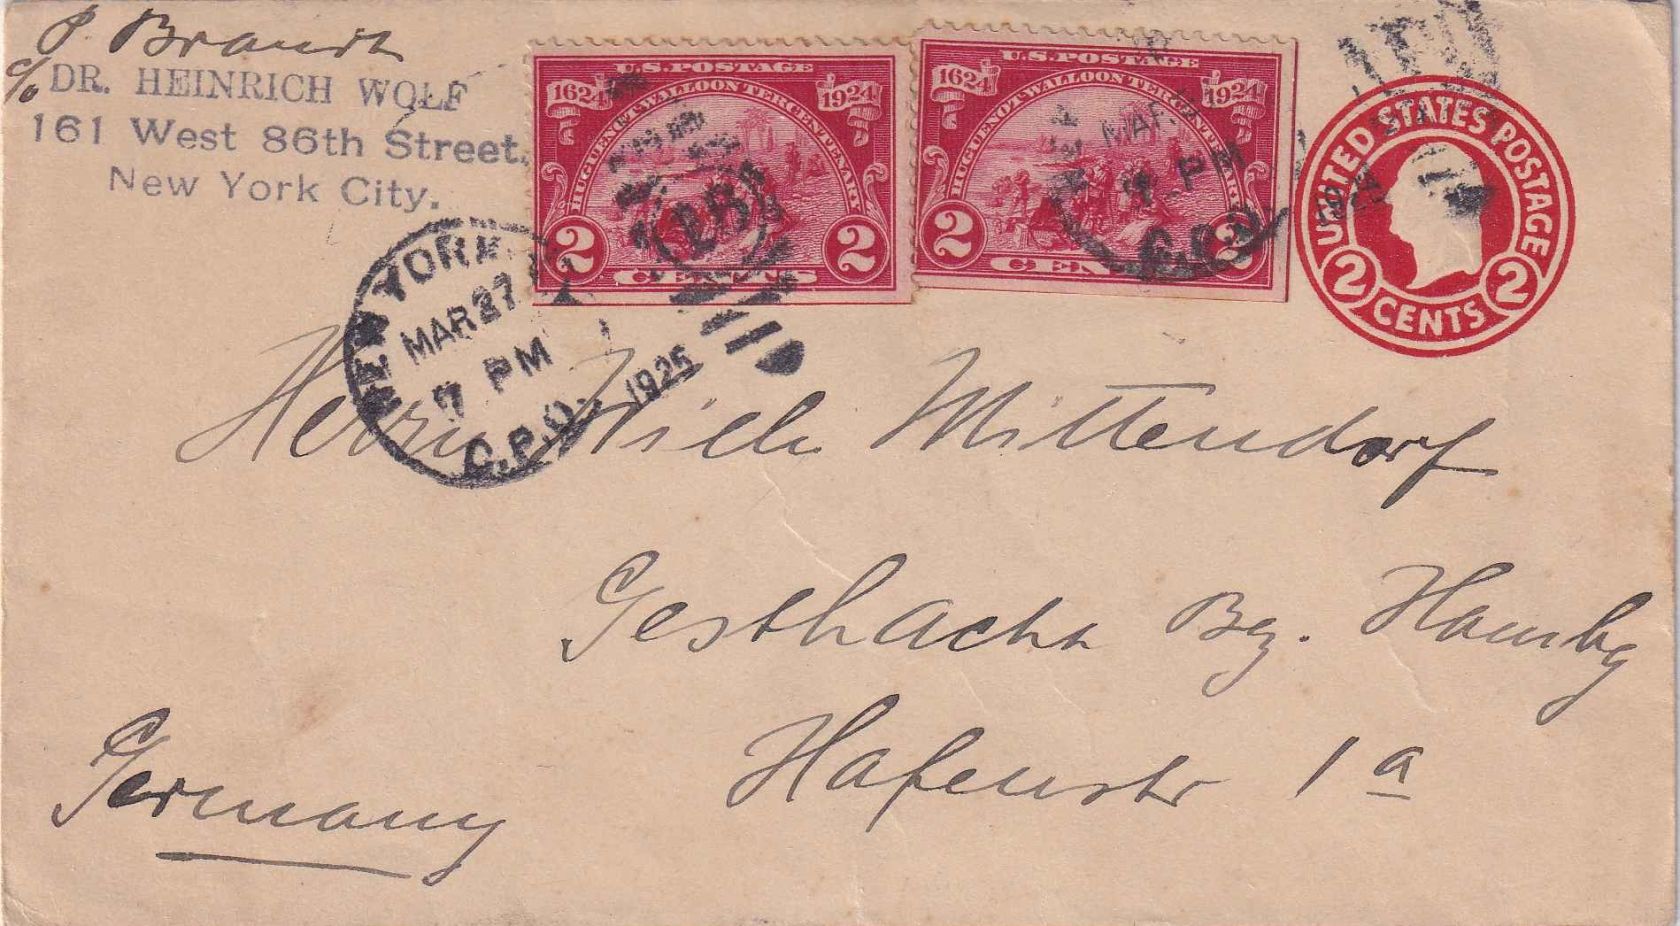 P. Brandt
c/o DR. HEINRICH WOLF
161 West 86th Street.
New York City.
U.S. POSTAGE
1624 1924
HUGUENOT-WALLOON TERCENTENARY
2 2
CENTS
U.S. POSTAGE
1624 1924
HUGUENOT-WALLOON TERCENTENARY
2 2
CENTS
UNITED STATES POSTAGE
2 2
CENTS
NEW YORK
MAR 27
7 PM
G.P.O. 1925
MAR
7 PM
G.P.O.
1925
Herrn Wilh Mittendorf
Gesthacht Bz. Hambg
Hafenstr 1a
Germany